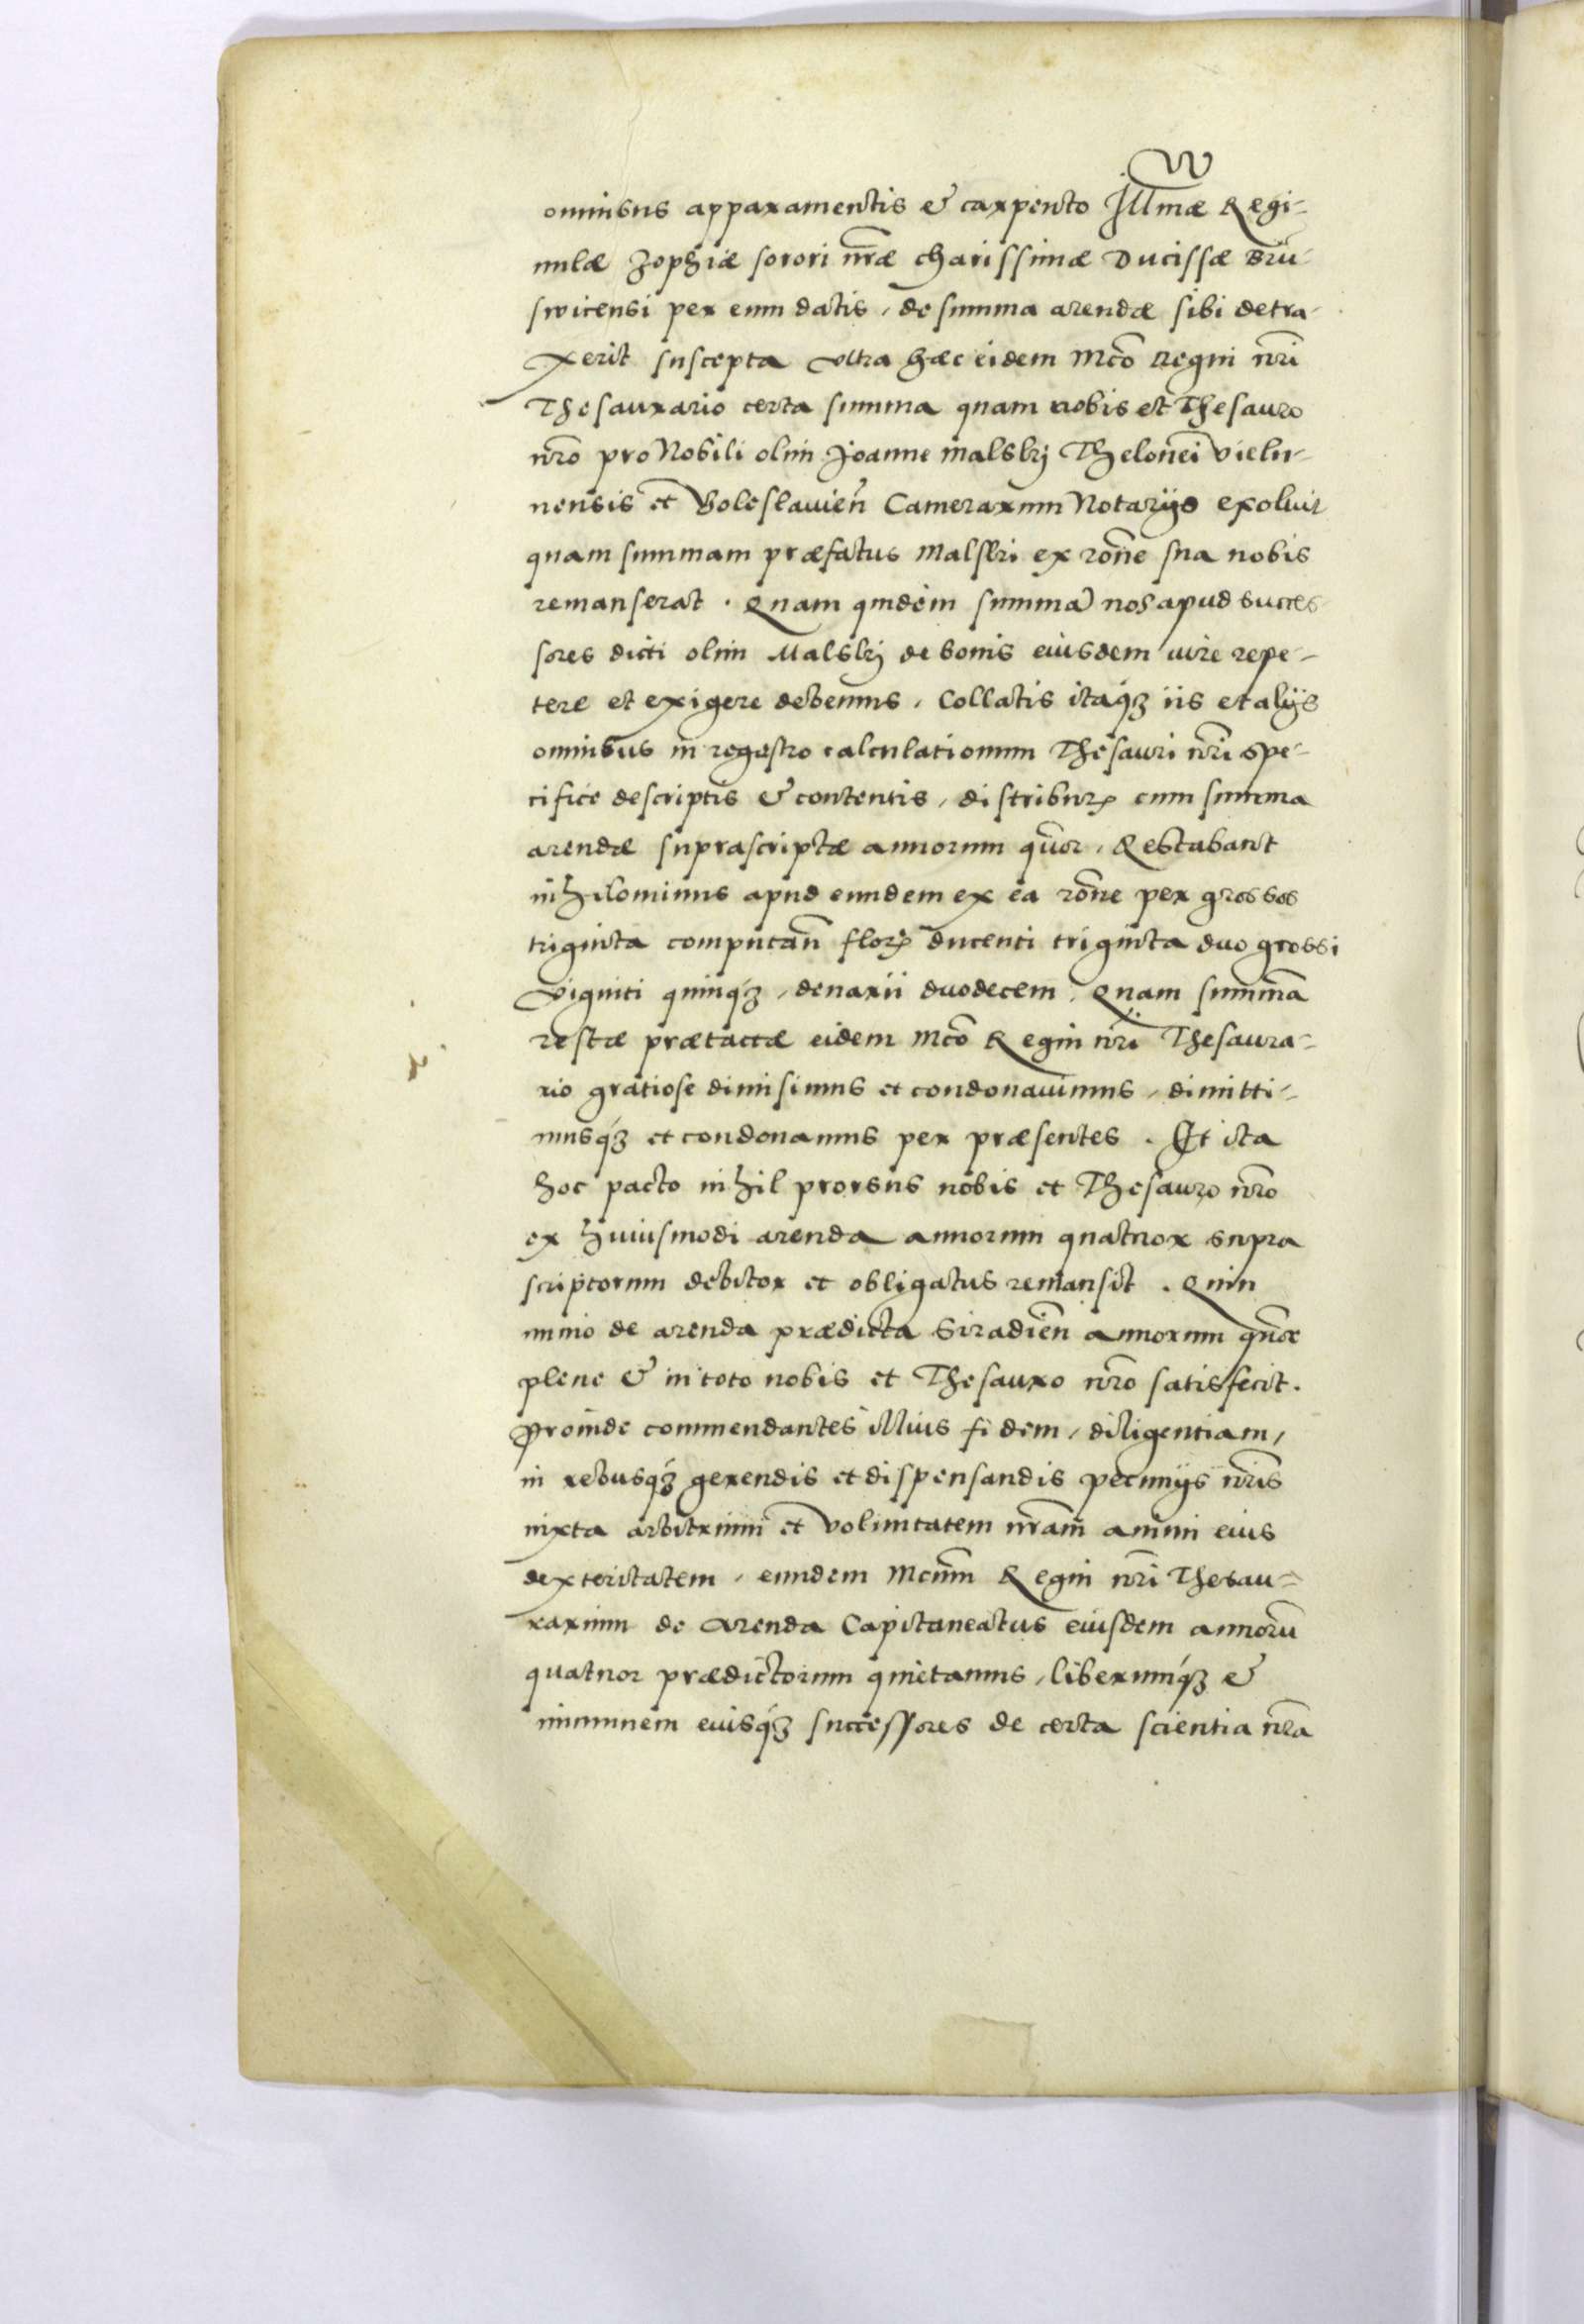 omnibus apparamentis & carpento Illmæ Regi-
nulæ Zophiæ sorori nr̃æ charissimæ Ducissæ Brū-
swicensi per eum datis, de summa arendæ sibi detra-
xerit suscepta Vltra hæc eidem Mco Regni nr̃i
Thesaurario certa summa quam nobis et Thesauro
nr̃o pro Nobili olim Joanne Malskj Thelonei Vielu-
nensis et Boleslauien̄ Camerarum Notarijs exoluit
quam summam præfatus Malski ex rōne sua nobis
remanserat. Quam quidem summā nos apud succes
sores dicti olim Malskj de bonis eiusdem iure repe-
tere et exigere debemus, Collatis itaq́ꝫ iis et alijs
omnibus in regestro calculationum Thesauri nr̃i spe-
cifice descriptis & contentis, distributꝝ cum summa
arendæ suprascriptæ annorum qūor, Restabant
nihilominus apud eundem ex ea rōne per grossos
triginta computan̄ florꝝ ducenti triginta duo grossi
Viginti quinq́ꝫ, denarii duodecem, Quam summā
restæ prætactæ eidem Mco Regni nr̃i Thesaura-
rio gratiose dimisimus et condonauimus, dimitti-
musq́ꝫ et condonamus per præsentes. Et ita
hoc pacto nihil prorsus nobis et Thesauro nr̃o
ex huiusmodi arenda annorum quatuor supra
scriptorum debitor et obligatus remansit. Quin
immo de arenda prædicta Siradien̄ annorum qūor
plene & in toto nobis et Thesauro nr̃o satisfecit.
Proinde commendantes illius fidem, diligentiam,
in rebusq́ꝫ gerendis et dispensandis pecunijs nr̃is
iuxta arbitrium et Voluntatem nr̃am animi eius
dexteritatem, eundem Mcum Regni nr̃i Thesau-
rarium de Arenda Capitaneatus eiusdem annorū
quatuor prædictorum quietamus, liberumq́ꝫ &
immunem eiusq́ꝫ successores de certa scientia nr̃a